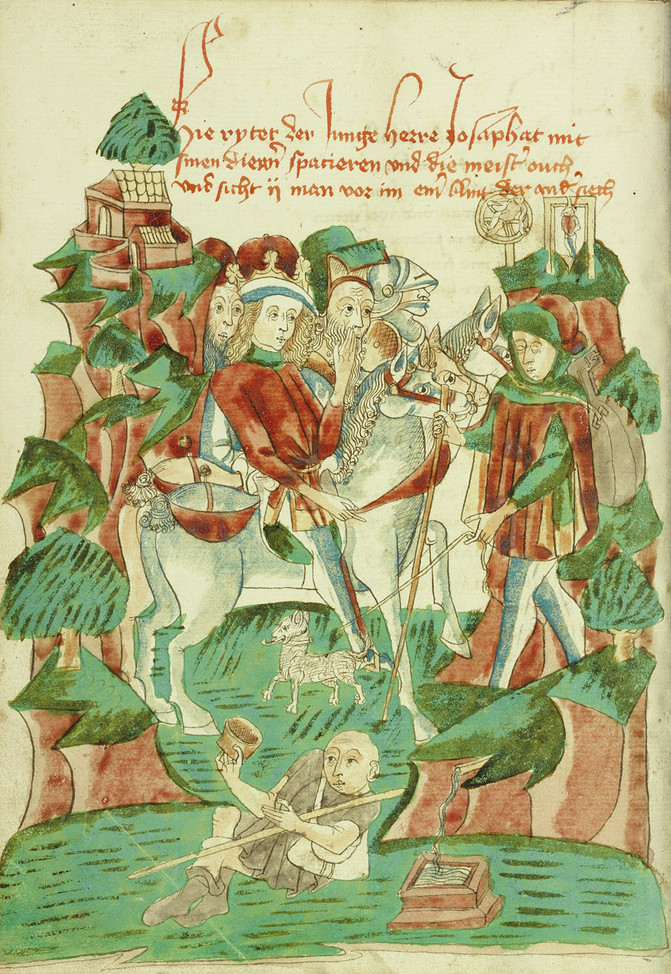 Hie rytet der Junge herre Josaphat mit
sinen dienern spacieren vnd die meister ouch
vnd sicht ij man vor im ein blint der ander siech